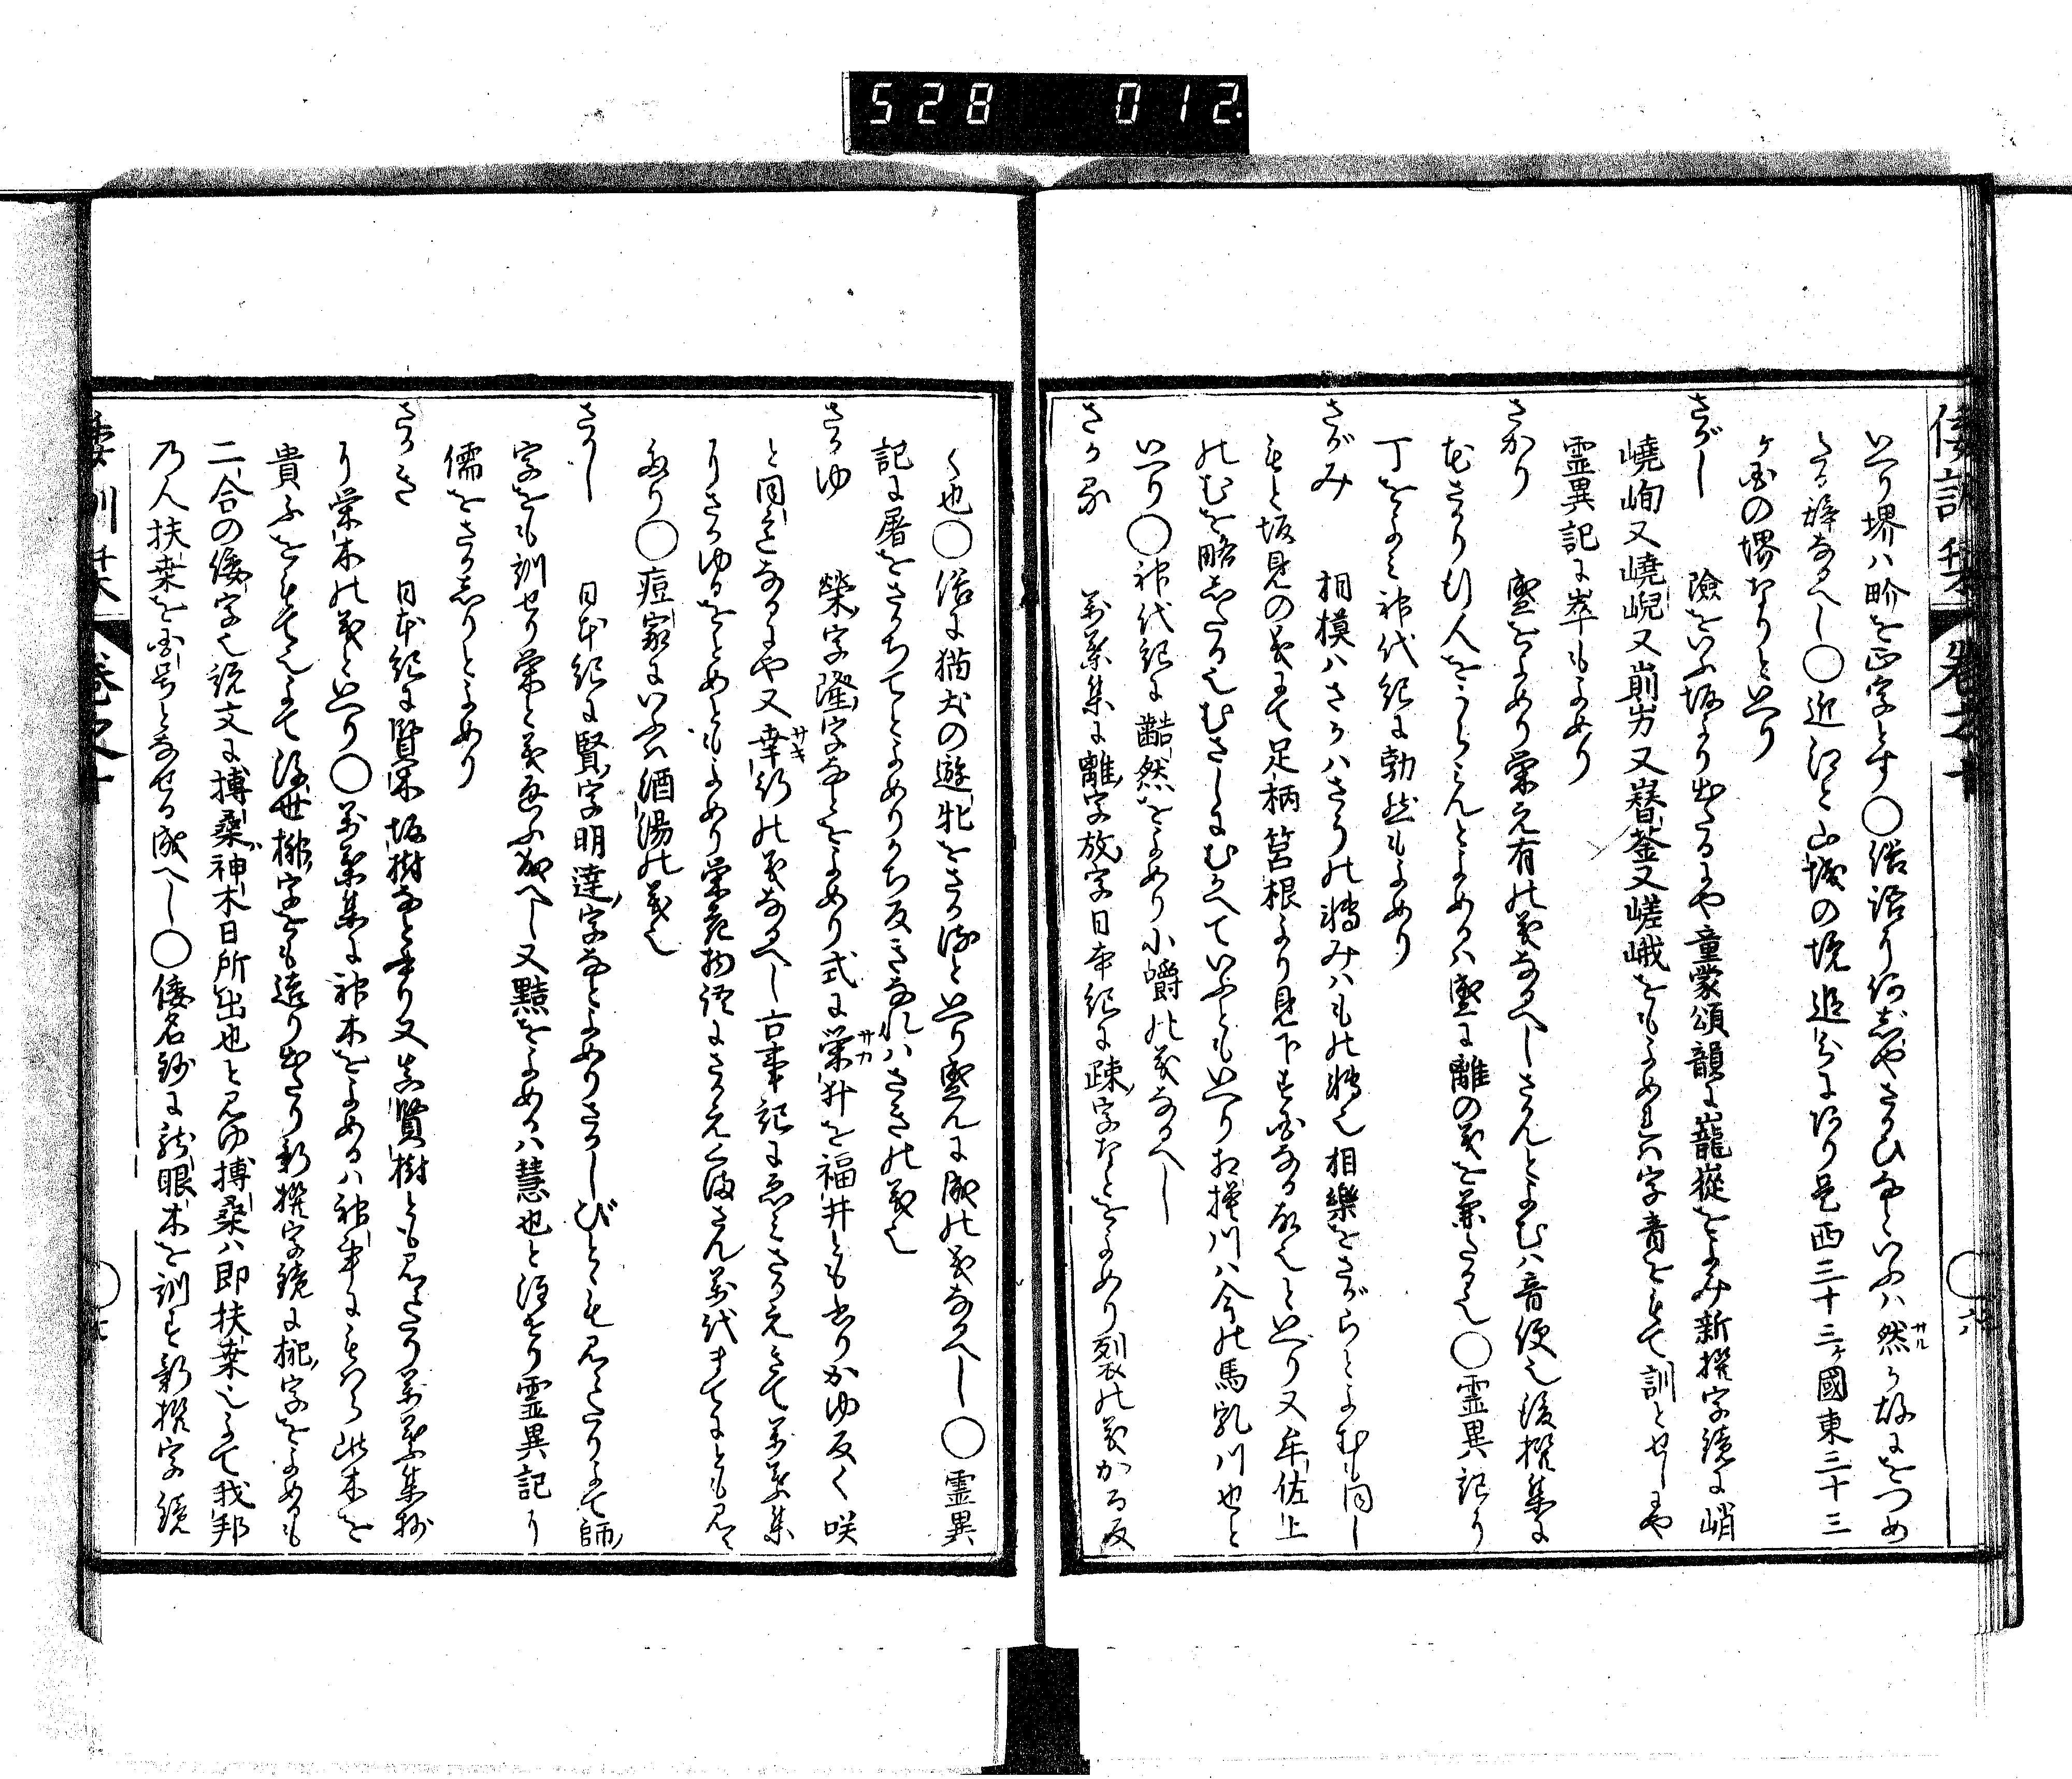 528 012
倭訓栞 巻之十 ○六
いへり堺ハ畍を正字とす○俗語に何ぢやさかひなといふハ然か故にをつめ
たる辞なるへし○近江と山城の境追分にあり是西三十三ヶ國東三十三
ヶ国の堺なりといへり
さがし 險をいふ坂より出たるにや童蒙頌韻に巃嵸をよみ新撰字鏡に峭
嶢峋又嶢崐又崱屴又嶜崟又嵯峨をもよめれハ字音をもて訓とせしにや
霊異記に崒もよめり
さかり 盛をよめり栄え有の義なるへしさかんとよむハ音便也後撰集に
花さかり行人をうらみんとよめるハ盛に離の義を兼たる也○霊異記に
丁をよみ神代紀に勃然もよめり
さがみ 相模ハさかハさうの轉みハもの轉也相樂をさがらとよむも同し
もと坂見の義にて足柄筥根より見下す国なる故也といへり又牟佐上
のむを略したる也むさしにむかへていふともいへり相模川ハ今の馬乳川也と
いへり○神代紀に齰然をよめり小嚼の義なるへし
さかる 萬葉集に離字放字日本紀に疎字なとをよめり裂の義かる反
く也○俗に猫犬の遊牝をさかると いへり盛んに成の義なるへし○霊異
記に屠をさかちてとよめりかち反きなれハさきの義也
さかゆ 榮字隆字なとをよめり式に栄井を福井とも書りかゆ反く咲
と同意なるにや又幸行の義なるへし古事記にゑみさかえきて萬葉集
にさかゆるをとめともよめり栄花物語にさかえくはさん萬代まてにとも見え
たり○痘家にいふハ酒湯の義也
さかし 日本紀に賢字明達字なとよめりさかしびとも見えたりよて師
字をも訓せり栄と義通ふ成へし又黠をよめるハ慧也と注せり霊異記に
儒をさかしりとよめり
さかき 日本紀に賢木坂樹なと書り又真賢樹とも見えたり萬葉集抄
に栄木の義といへり○萬葉集に神木をよめるハ神事にもはら此木を
貴ふをもて也よて後世榊字をも造り出たり新撰字鏡に杝字をよめるも
二合の倭字也説文に搏桑神木日所出也と見ゆ搏桑ハ即扶桑也よて我邦
乃人扶桑を国号となせる成へし○倭名鈔に龍眼木を訓す新撰字鏡
倭訓栞 巻之十 ○六